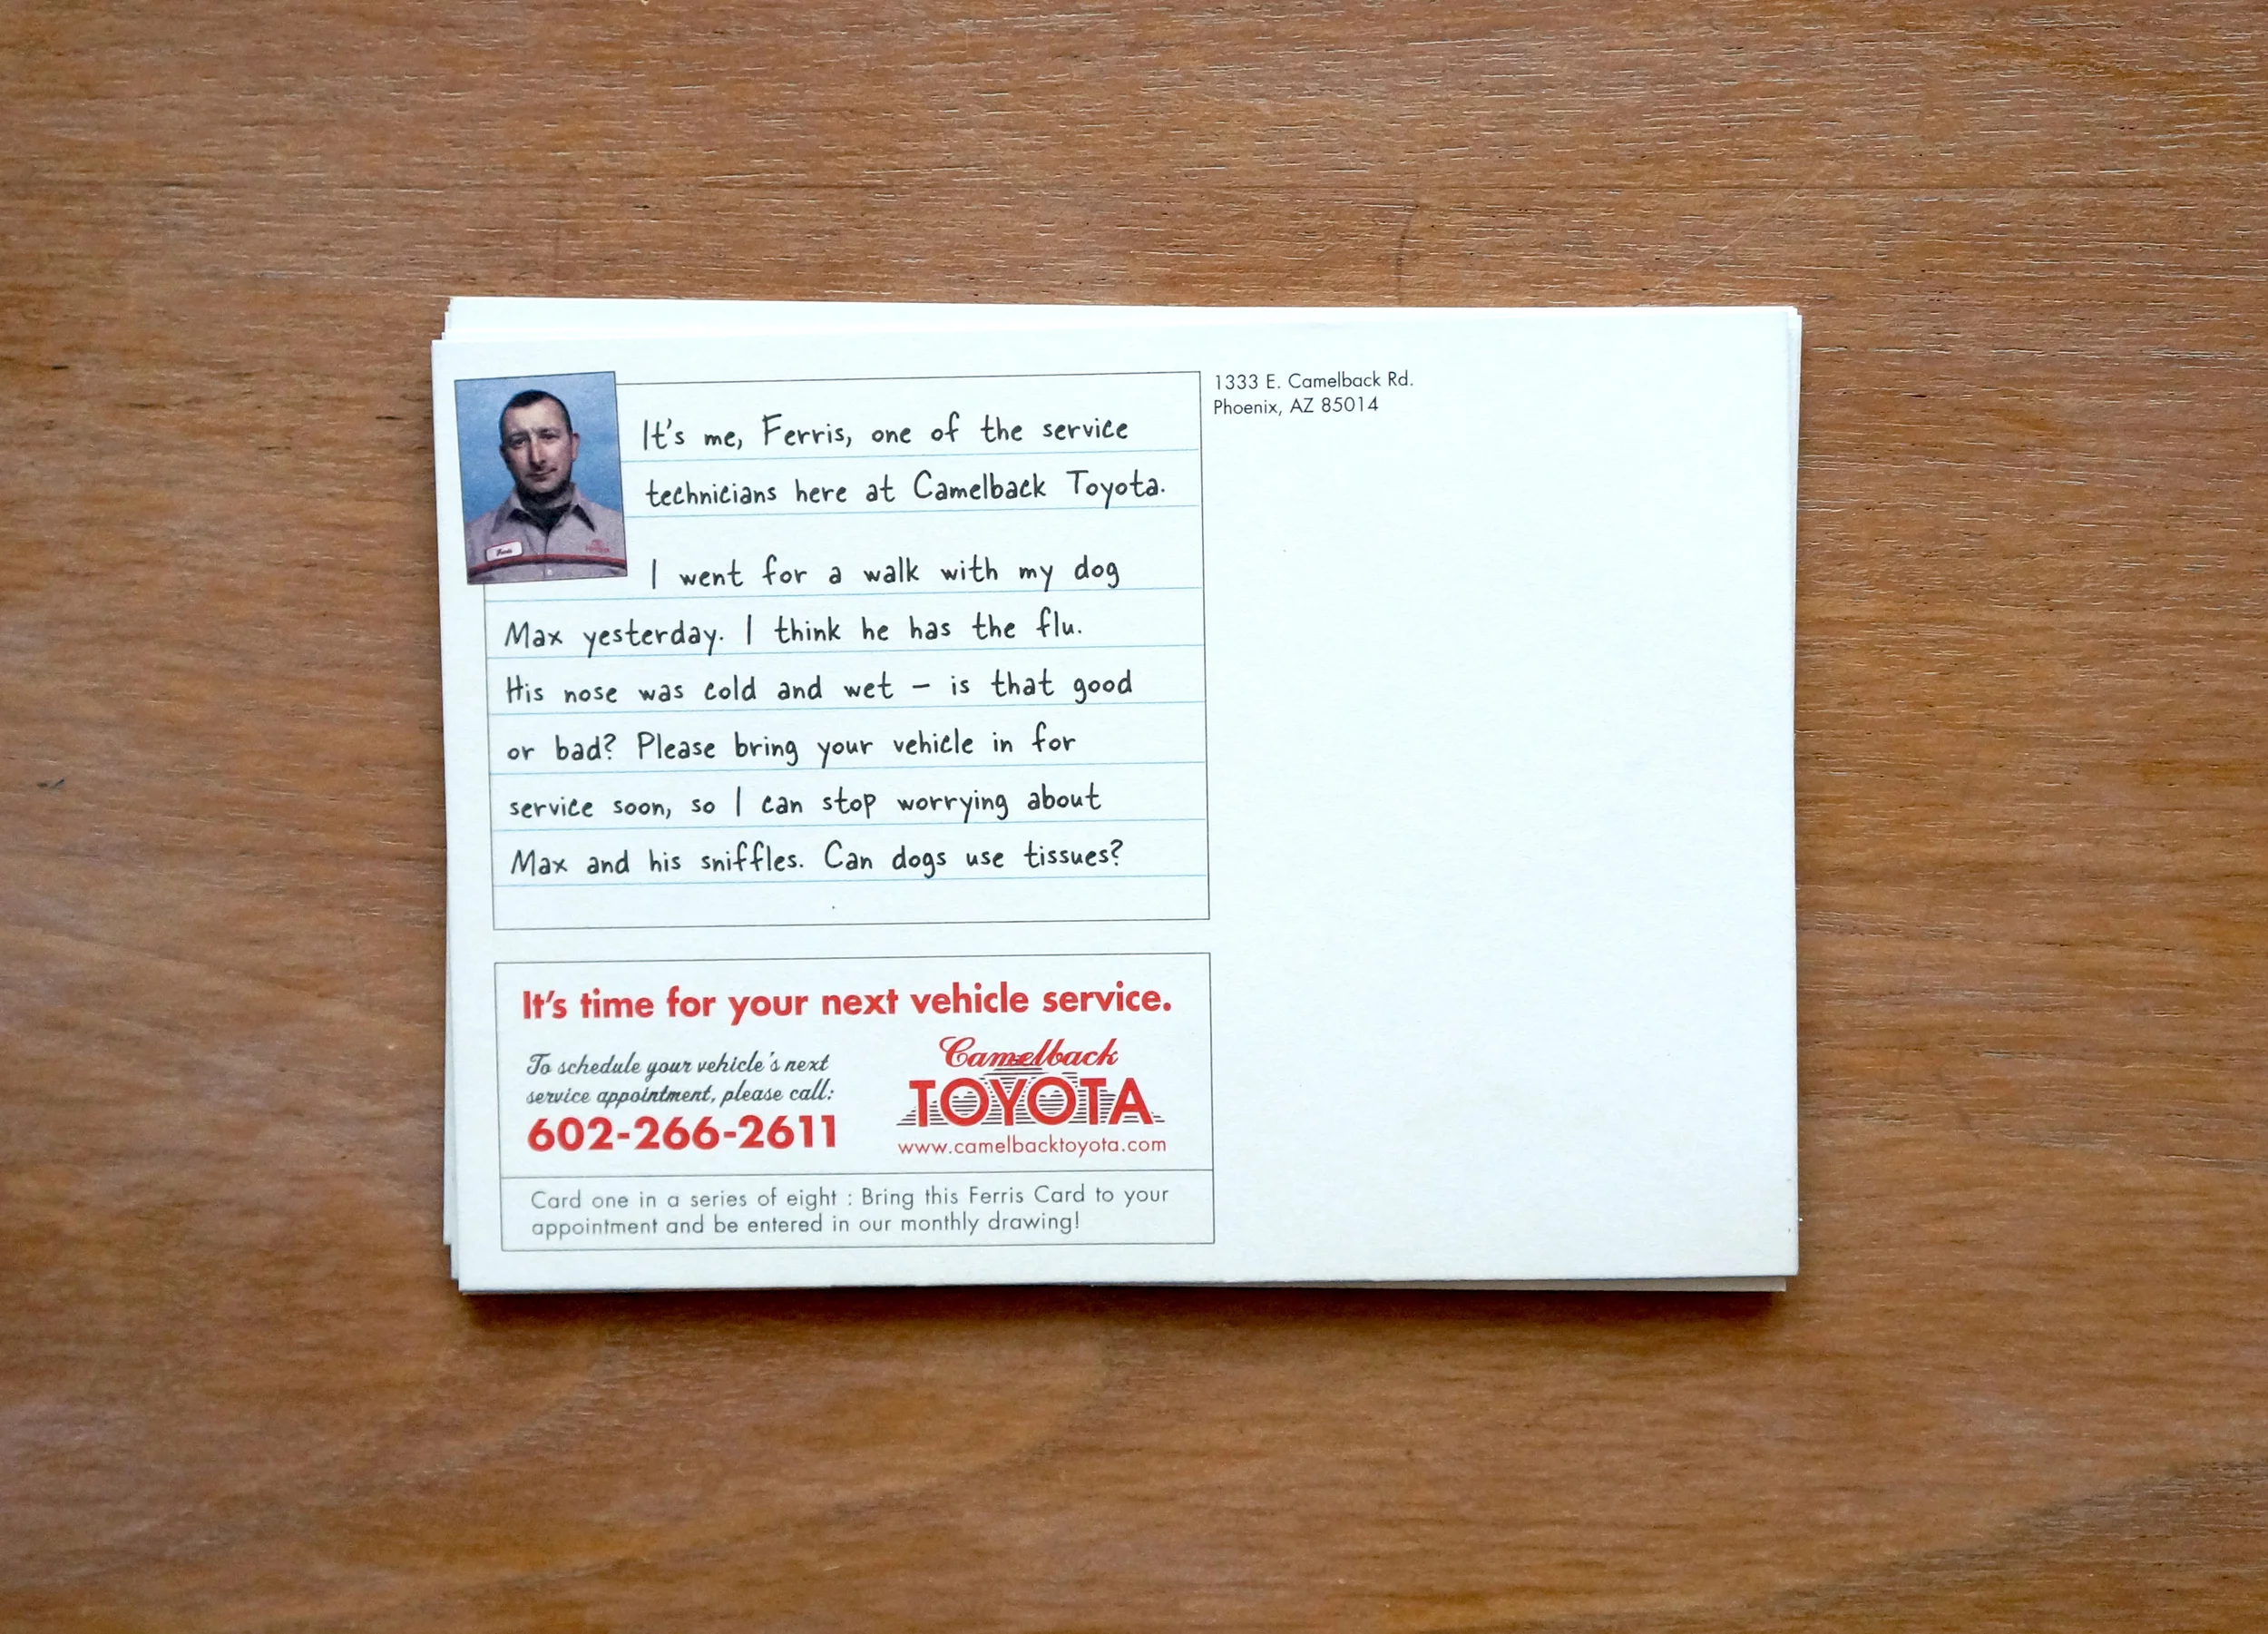 It's me, Ferris, one of the service
technicians here at Camelback Toyota.
I went for a walk with my dog
Max yesterday. I think he has the flu.
His nose was cold and wet – is that good
or bad? Please bring your vehicle in for
service soon, so I can stop worrying about
Max and his sniffles. Can dogs use tissues?
1333 E. Camelback Rd.
Phoenix, AZ 85014
It's time for your next vehicle service.
To schedule your vehicle's next
service appointment, please call:
602-266-2611
Camelback
TOYOTA
www.camelbacktoyota.com
Card one in a series of eight : Bring this Ferris Card to your
appointment and be entered in our monthly drawing!